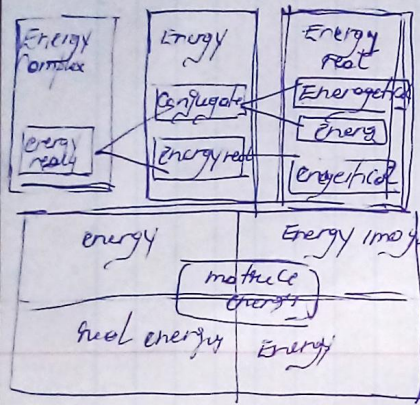 Energy
Complex
energy
realy
Enrgy
Conjugate
Energyreal
Energy
real
Eneragetical
Energ
engetical
energy
Energy imag
matruce
energy
real energy
Energy